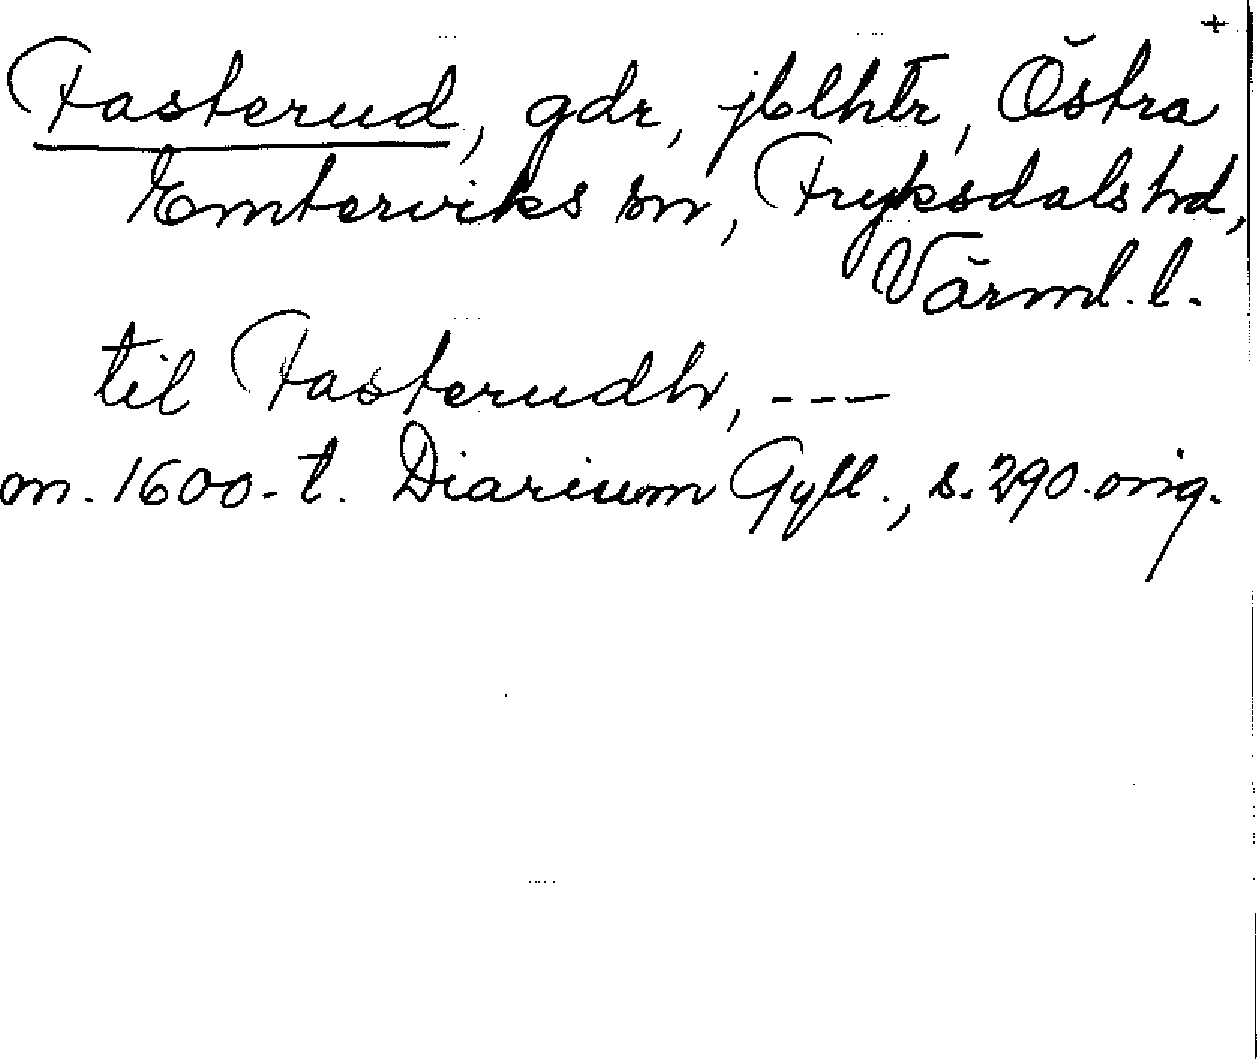 +
Fasterud, gdr, jblhtr, Östra
Emterviks sn, Fryksdals hd,
Värml. l.
til Fasterudh, ---
m. 1600-t. Diarium Gyll., s. 290. orig.